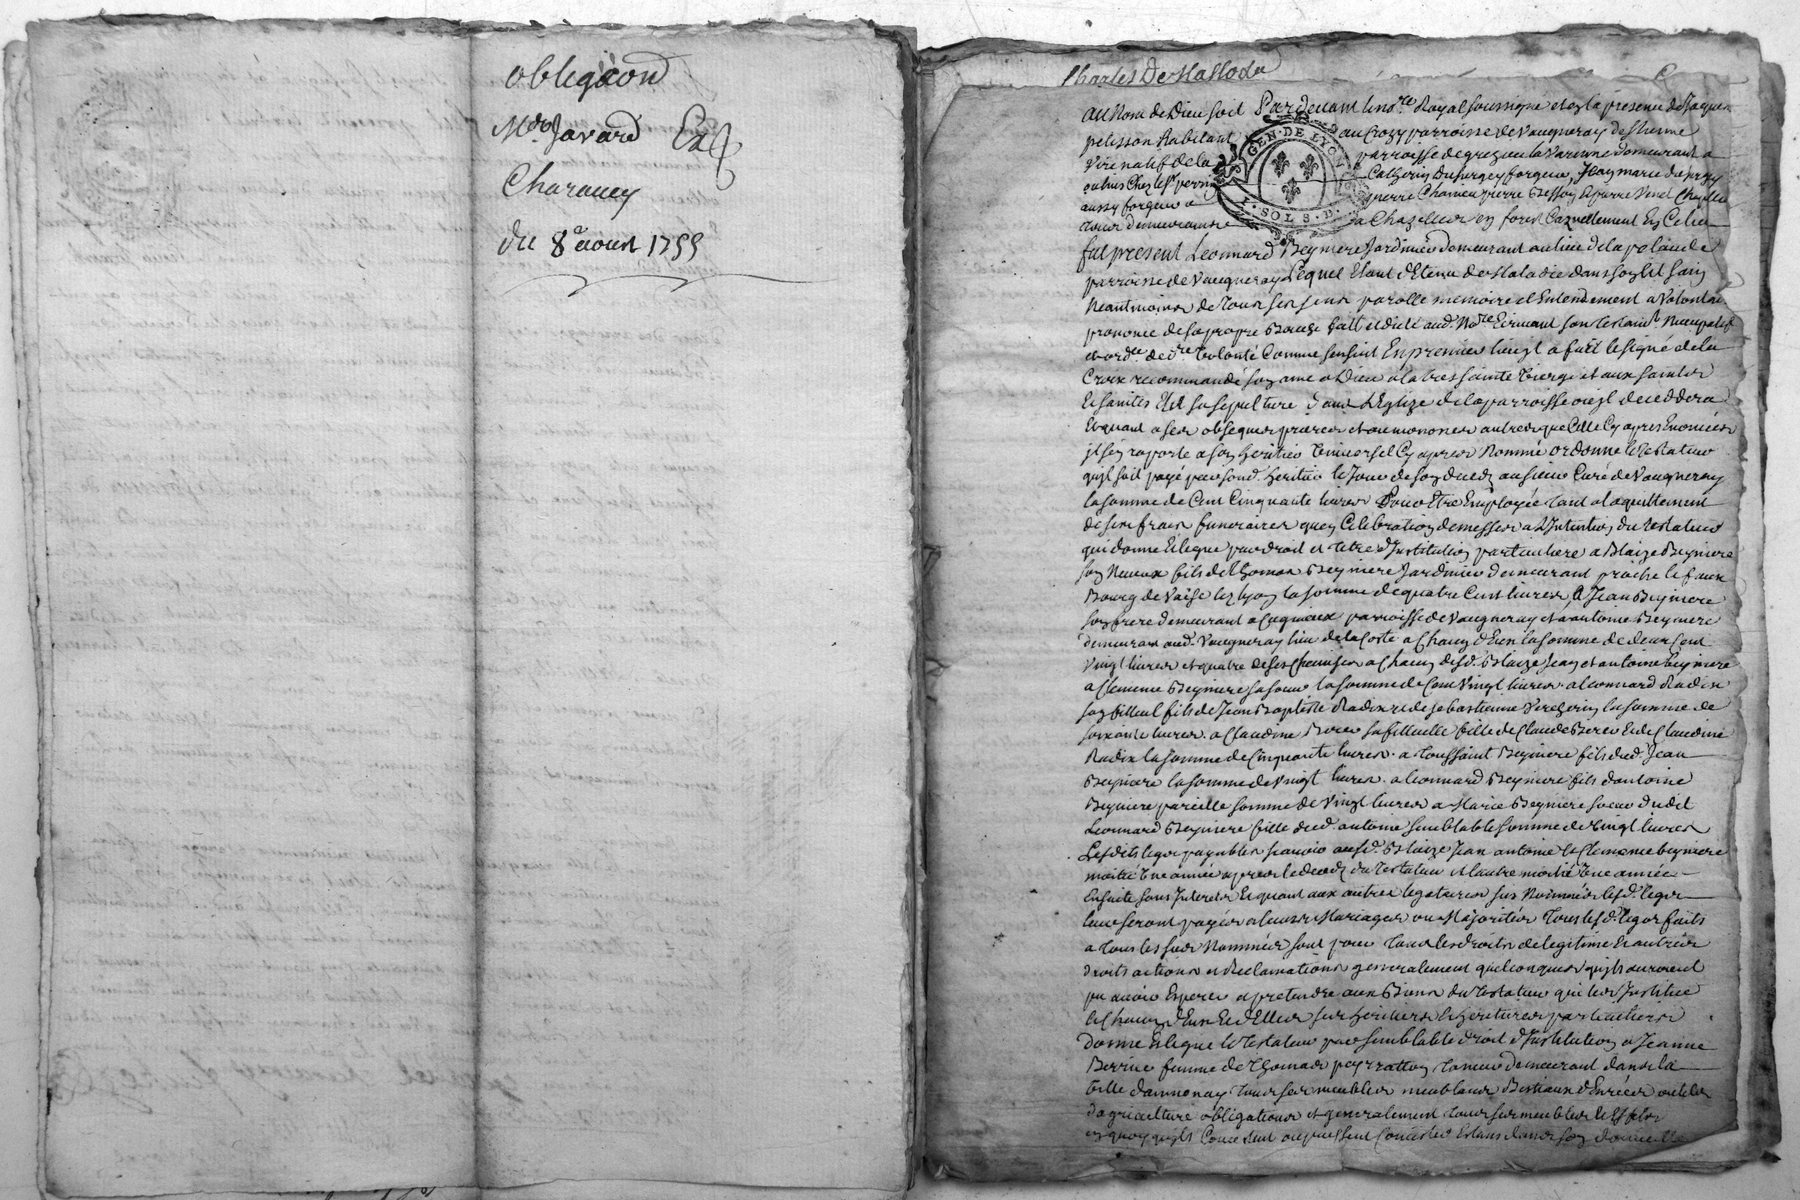 obligaõn
Mr Javard
Charancy
du 8e aoust 1755
Charles De
au Nom de Dieu soit Pardevant le nore Royal soussigné et en la presence de Jaques
pelisson habitant au Crozy parroisse de Vaugneray
natif de la parroisse de grezieu la Varenne demeurant a
GEN. DE LYON
SOLS. D.
aussy forgeur a pierre Chanieu pierre Besson
demeurants a Chazelles en forest Caznellement En Ce lieu
fut present Leonnard Beyniere Jardinier demeurant au lieu de la
parroisse de Vaugneray Lequel Etant detenu de Maladie dans son lit sain
Neantmoins de tous ses sens parolle memoire et Entendement a Volontai
prononcé de sa propre Bouche fait et dicté aud. Nore Ecrivant son testamt Nuncupatif
et ordre de dre Volonté Comme sensuit En premier lieu il a fait le signe de la
Croix recommandé son ame a Dieu a la tres sainte Vierge et aux saints
Et saintes Elit sa sepulture dans L'Eglize de la parroisse ou il deceddera
Et quant a ses obseques prieres et aumononer autres que Celle Cy apres Enoncées
il s'en raporte a son heritier Universel Cy apres Nommé ordonne le testateur
qu'il soit payé par sond. heritier le Jour de son deces au sieur Curé de Vaugneray
la somme de Cent Cinquante livres Pour Etre Employée tant a l'aquittement
de ses frais funeraires qu'en Celebration de messes a L'Intention du testateur
qui donne Et legue par droit et titre d'Institution particuliere a Blaize Beyniere
son Neveux fils de Thomas Beyniere Jardinier demeurant proche le faux
Bourg de Vaise lez lyon la somme de quatre Cent livres, A Jean Beyniere
son frere demeurant a parroisse de Vaugneray et a antoine Beyniere
demeurant aud. Vaugneray lieu de la Coste a Chacun d'Eux la somme de deux Cent
Vingt livres et quatre de ses Chemises a Chacun desd. Blaize Jean et antoine beyniere
a Clemence Beyniere sa soeur la somme de Cent Vingt livres. a leonnard Radix
son filleul fils de Jean Baptiste Radix et de sebastienne la somme de
soixante livres. a Claudine sa filleulle fille de Claude et de Claudine
Radix la somme de Cinquante livres. a toussaint Beyniere fils dud. Jean
Beyniere la somme de Vingt livres. a leonnard Beyniere fils d'antoine
Beyniere pareille somme de Vingt livres a Marie Beyniere soeur dudit
Leonnard Beyniere fille dud. antoine semblable somme de Vingt livres
Lesdits legs payables scavoir ausd. Blaize Jean antoine et Clemence beyniere
moitié Une année apres le deces du testateur et l'autre moitié Une année
Ensuite sans Interets Et quant aux autres legataires sus Nommés lesd. legs
leur seront payés a leurs Mariages ou Majorités tous lesd. legs faits
a tous les sus Nommés sont pour tous les droits de legitime Et autres
droits actions et Reclamations generalement quelconques qu'ils auroient
pu avoir Esperer et pretendre aux Biens du testateur qui les Institue
et Chacun d'Eux Et d'Elles ses heritiers Et heritieres particuliers
donne Et legue le testateur par semblable droit d'Institution a Jeanne
femme de Thomas demeurant dans la
Ville d'annonay tous ses meubles meublans Bestiaux d'Enrées outils
d'agriculture obligations et generalement tous ses meubles Et Effets
en quoy qu'ils Consistent ou puissent Consister Estans dans son